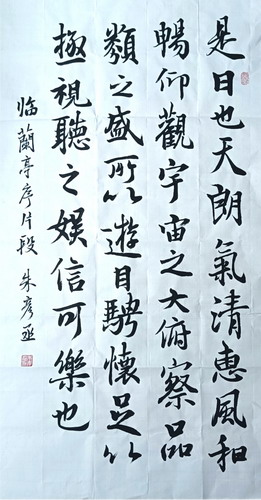 是日也天朗氣清惠風和
暢仰觀宇宙之大俯察品
類之盛所以遊目騁懷足以
極視聽之娛信可樂也
临蘭亭序片段 朱彦丞